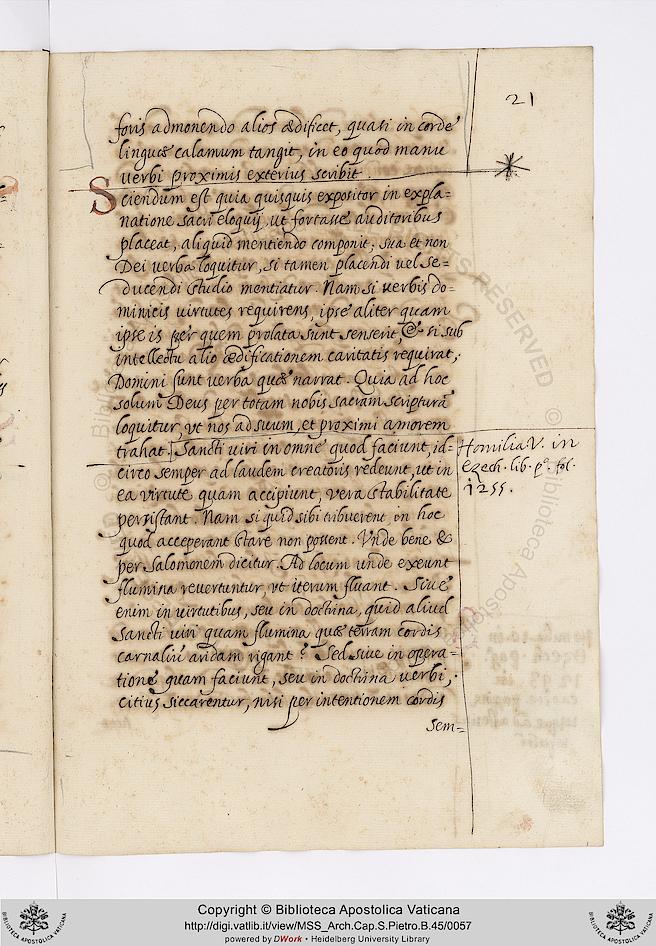 21
foris admonendo alios ædificet, quasi in corde
linguæ calamum tangit, in eo quod manu
verbi proximis exterius scribit.
Sciendum est quia quisquis expositor in expla=
natione sacri eloquij, ut fortasse auditoribus
placeat, aliquid mentiendo componit; sua et non
Dei verba loquitur, si tamen placendi vel se=
ducendi studio mentiatur. Nam si verbis do=
minicis virtutes requirens, ipse aliter quam
ipse is per quem prolata sunt senserit, & si sub
intellectu alio ædificationem caritatis requirat,
Domini sunt verba quæ narrat. Quia ad hoc
solum Deus per totam nobis sacram scripturā
loquitur, vt nos ad suum, et proximi amorem
trahat. Sancti viri in omne quod faciunt, id=
circo semper ad laudem creatoris redeunt, ut in
ea virtute quam accipiunt, vera stabilitate
persistant. Nam si quid sibi tribuerent, in hoc
quod acceperant stare non possent. Vnde bene &
per Salomonem dicitur. Ad locum unde exeunt
flumina revertuntur, vt iterum fluant. Siue
enim in virtutibus, seu in doctrina, quid aliud
Sancti viri quam flumina quæ terram cordis
carnaliū aridam rigant? Sed siue in opera=
tione quam faciunt, seu in doctrina verbi,
citius siccarentur, nisi per intentionem cordis
sem=
Homilia V. in
Ezech. lib. pº. fol.
1255.
Copyright © Biblioteca Apostolica Vaticana
http://digi.vatlib.it/view/MSS_Arch.Cap.S.Pietro.B.45/0057
powered by DWork • Heidelberg University Library